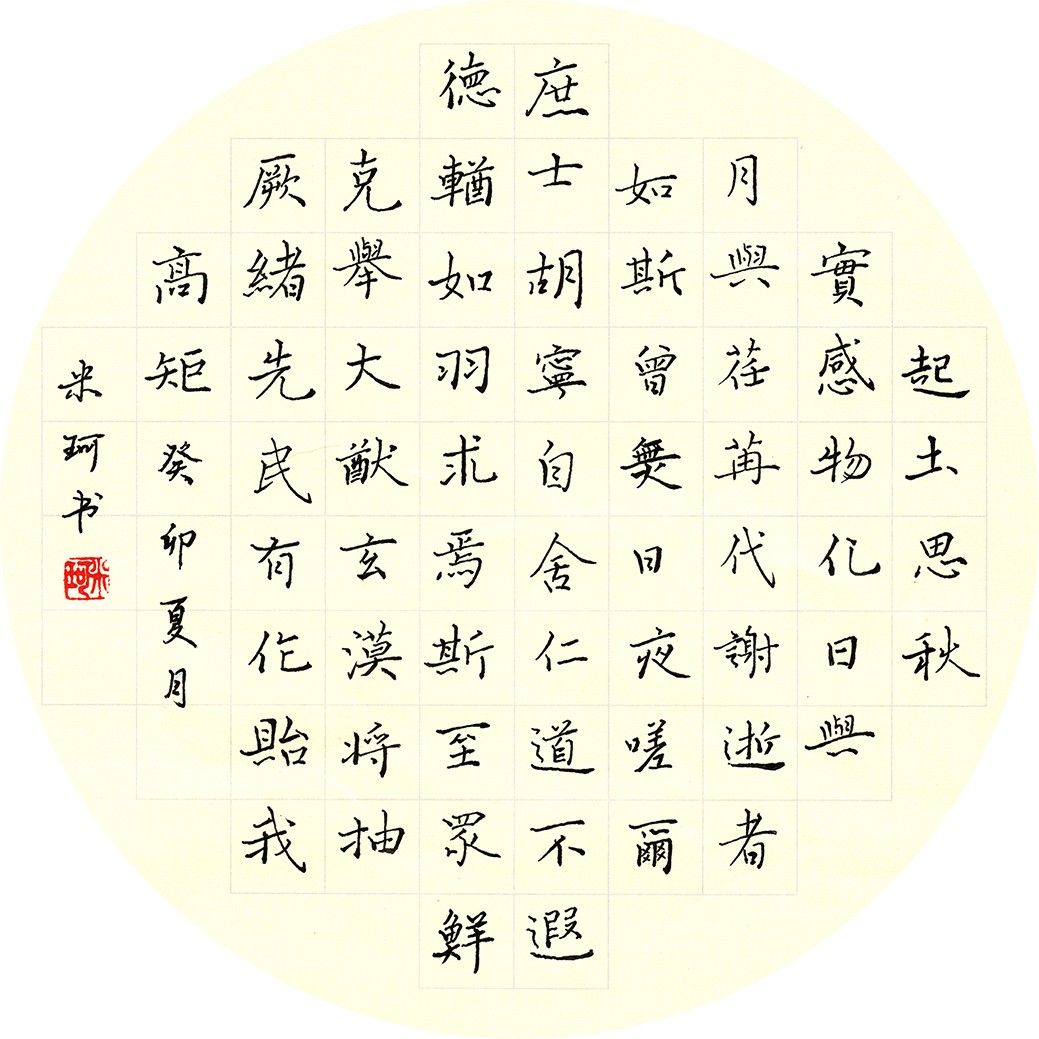 起土思秋
實感物化日與
月與荏苒代謝逝者
如斯曾無日夜嗟爾
庶士胡寧自舍仁道不遐
德輶如羽求焉斯至眾鮮
克舉大猷玄漠将抽
厥緒先民有作貽我
高矩癸卯夏月
米珂书
米珂